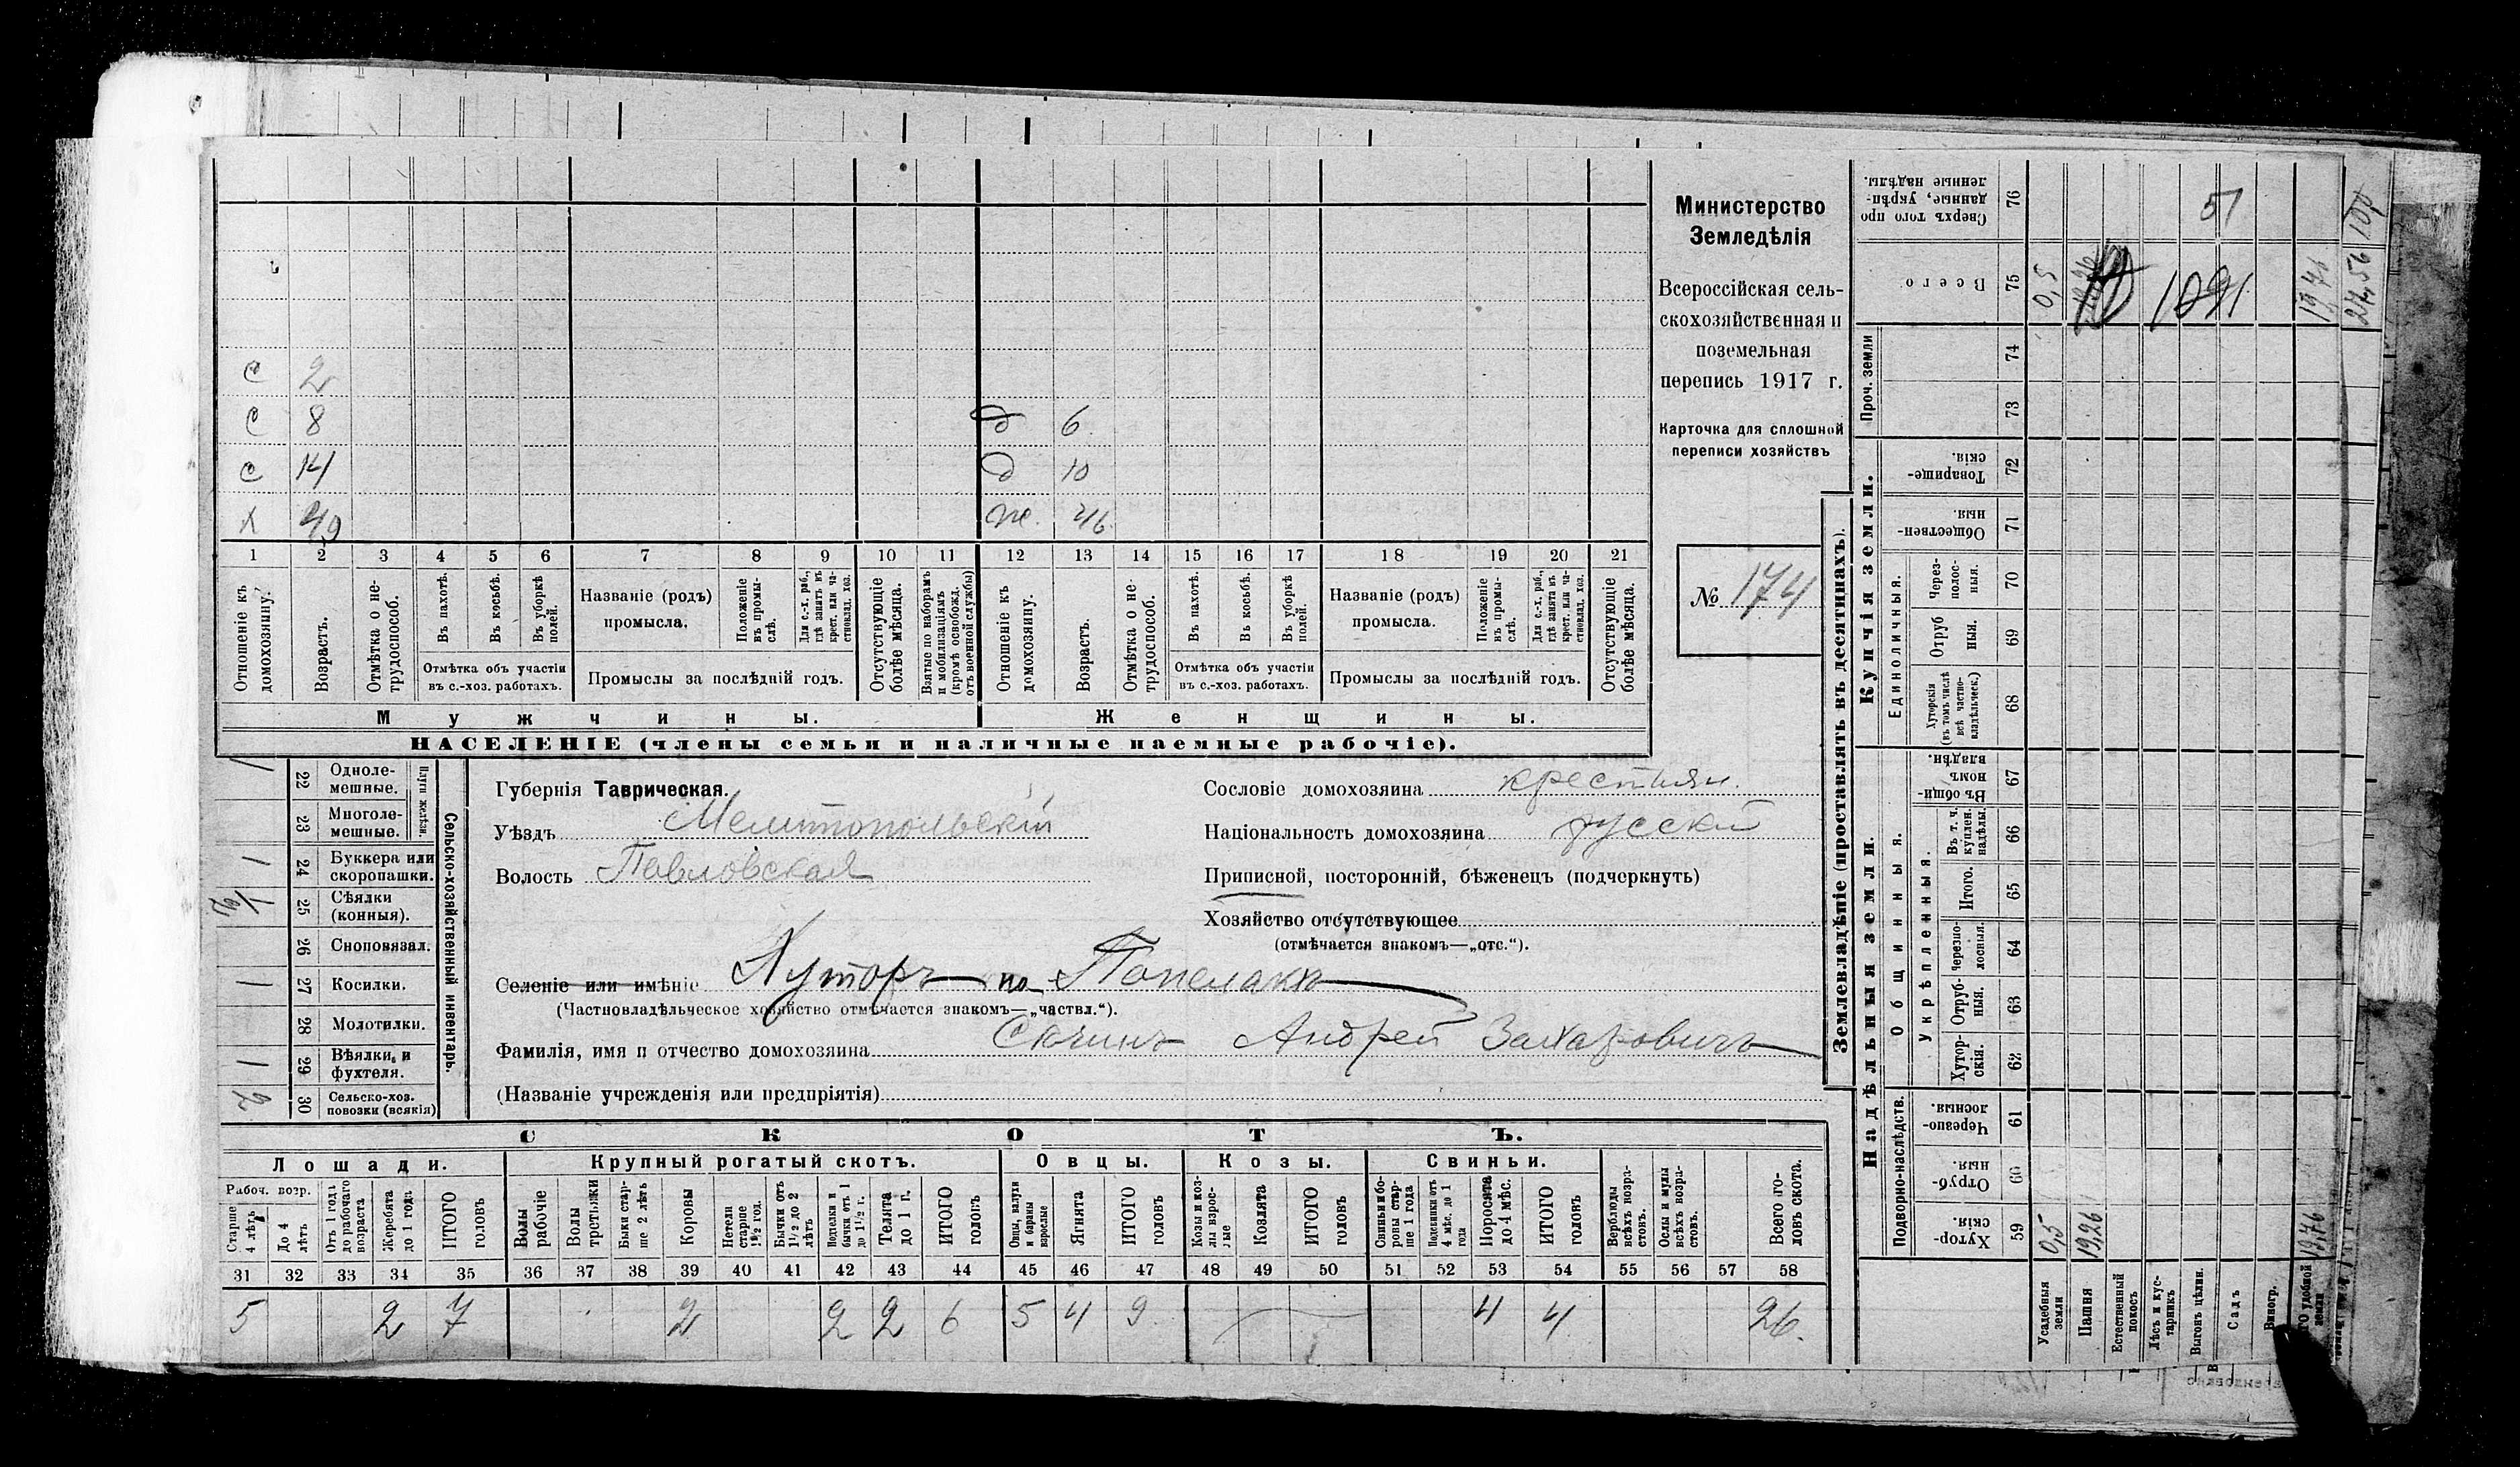 С 2
С 8 д 6
С 14 д 10
Х 49 ж. 46
1 2 3 4 5 6 7 8 9 10 11 12 13 14 15 16 17 18 19 20 21
Отношеніе къ домохозяину.
Возрастъ.
Отмѣтка о не-трудоспособ.
Въ пахотѣ.
Въ косьбѣ.
Въ уборкѣ полей.
Отмѣтка объ участіи
въ с.-хоз. работахъ.
Названіе (родъ)
промысла.
Положеніе въ промы-слѣ.
Для с.-х. раб., гдѣ занятъ въ крест. или ча-стновлад. хоз.
Промыслы за послѣдній годъ.
Отсутствующіе болѣе мѣсяца.
Взятые по наборамъ и мобилизаціямъ (кромѣ освобожд. отъ военной службы)
Отношеніе къ домохозяину.
Возрастъ.
Отмѣтка о не-трудоспособ.
Въ пахотѣ.
Въ косьбѣ.
Въ уборкѣ полей.
Отмѣтка объ участіи
въ с.-хоз. работахъ.
Названіе (родъ)
промысла.
Положеніе въ промы-слѣ.
Для с.-х. раб., гдѣ занята въ крест. или ча-стновлад. хоз.
Промыслы за послѣдній годъ.
Отсутствующіе болѣе мѣсяца.
Мужчины. Женщины.
НАСЕЛЕНІЕ (члены семьи и наличные наемные рабочіе).
Министерство
Земледѣлія
Всероссійская сель-
скохозяйственная и
поземельная
перепись 1917 г.
Карточка для сплошной
переписи хозяйствъ
№ 174
Сельско-хозяйственный инвентарь.
Плуги желѣзн.
22 Одноле-мешные. 1
23 Многоле-мешные.
24 Буккера или скоропашки. 1
25 Сѣялки (конныя).
26 Сноповязал.
27 Косилки. 1
28 Молотилки.
29 Вѣялки и фухтеля. 1
30 Сельско-хоз. повозки (всякія) 2
Губернія Таврическая.
Уѣздъ Мелитопольскій
Волость Павловская
Сословіе домохозяина крестьян.
Національность домохозяина русскій
Приписной, посторонній, бѣженецъ (подчеркнуть)
Хозяйство отсутствующее
(отмѣчается знакомъ—„отс.“).
Селеніе или имѣніе Хуторъ
(Частновладѣльческое хозяйство отмѣчается знакомъ—„частвл.“).
Фамилія, имя и отчество домохозяина Андрей Захаровичъ
(Названіе учрежденія или предпріятія)
СКОТЪ.
Лошади. Крупный рогатый скотъ. Овцы. Козы. Свиньи.
Рабоч. возр.
Старше 4 лѣтъ
До 4 лѣтъ
Отъ 1 года до рабочаго возраста
Жеребята до 1 года
ИТОГО головъ
Волы рабочіе
Волы
Быки стар-ше 2 лѣтъ
Коровы
Нетели старше 1½ год.
Бычки отъ 1½ до 2 лѣтъ
Подтелки и бычки отъ 1 до 1½ г.
Телята до 1 г.
ИТОГО головъ
Овцы, валухи и бараны взрослые
Ягнята
ИТОГО головъ
Козы и коз-лы взрос-лые
Козлята
ИТОГО головъ
Свиньи и бо-ровы стар-ше 1 года
Подсвинки отъ 4 мѣс. до 1 года
Поросята до 4 мѣс.
ИТОГО головъ
Верблюды всѣхъ возра-стовъ.
Ослы и мулы всѣхъ возра-стовъ.
Всего го-ловъ скота.
31 32 33 34 35 36 37 38 39 40 41 42 43 44 45 46 47 48 49 50 51 52 53 54 55 56 57 58
5 2 7 2 2 2 6 5 4 9 4 4 26.
Землевладѣніе (проставлять въ десятинахъ).
Надѣльныя земли. Купчія земли. Проч. земли
Подворно-наслѣдств.
Общинныя.
Укрѣпленныя.
Единоличныя.
Хутор-скія. 59
Отруб-ныя. 60
Черезпо-лосныя. 61
Хутор-скія. 62
Отруб-ныя. 63
Черезпо-лосныя. 64
Итого. 65
Въ т. ч. куплен. надѣлы. 66
Въ общин-номъ владѣн. 67
Хуторскія (въ томъ числѣ всѣ частно-владѣльческ.) 68
Отруб ныя. 69
Через-полос-ныя. 70
Обществен-ныя. 71
Товарище-скія. 72
73
74
Всего 75
Сверхъ того про данные, укрѣп-ленные надѣлы. 76
Усадебныя земли 0,5 0,5
Пашня 19,26
Естественный покосъ
Лѣсъ и кус-тарникъ
Выгонъ цѣлин.
Садъ
Виногр.
19,76 19,76
51
1091
24,56